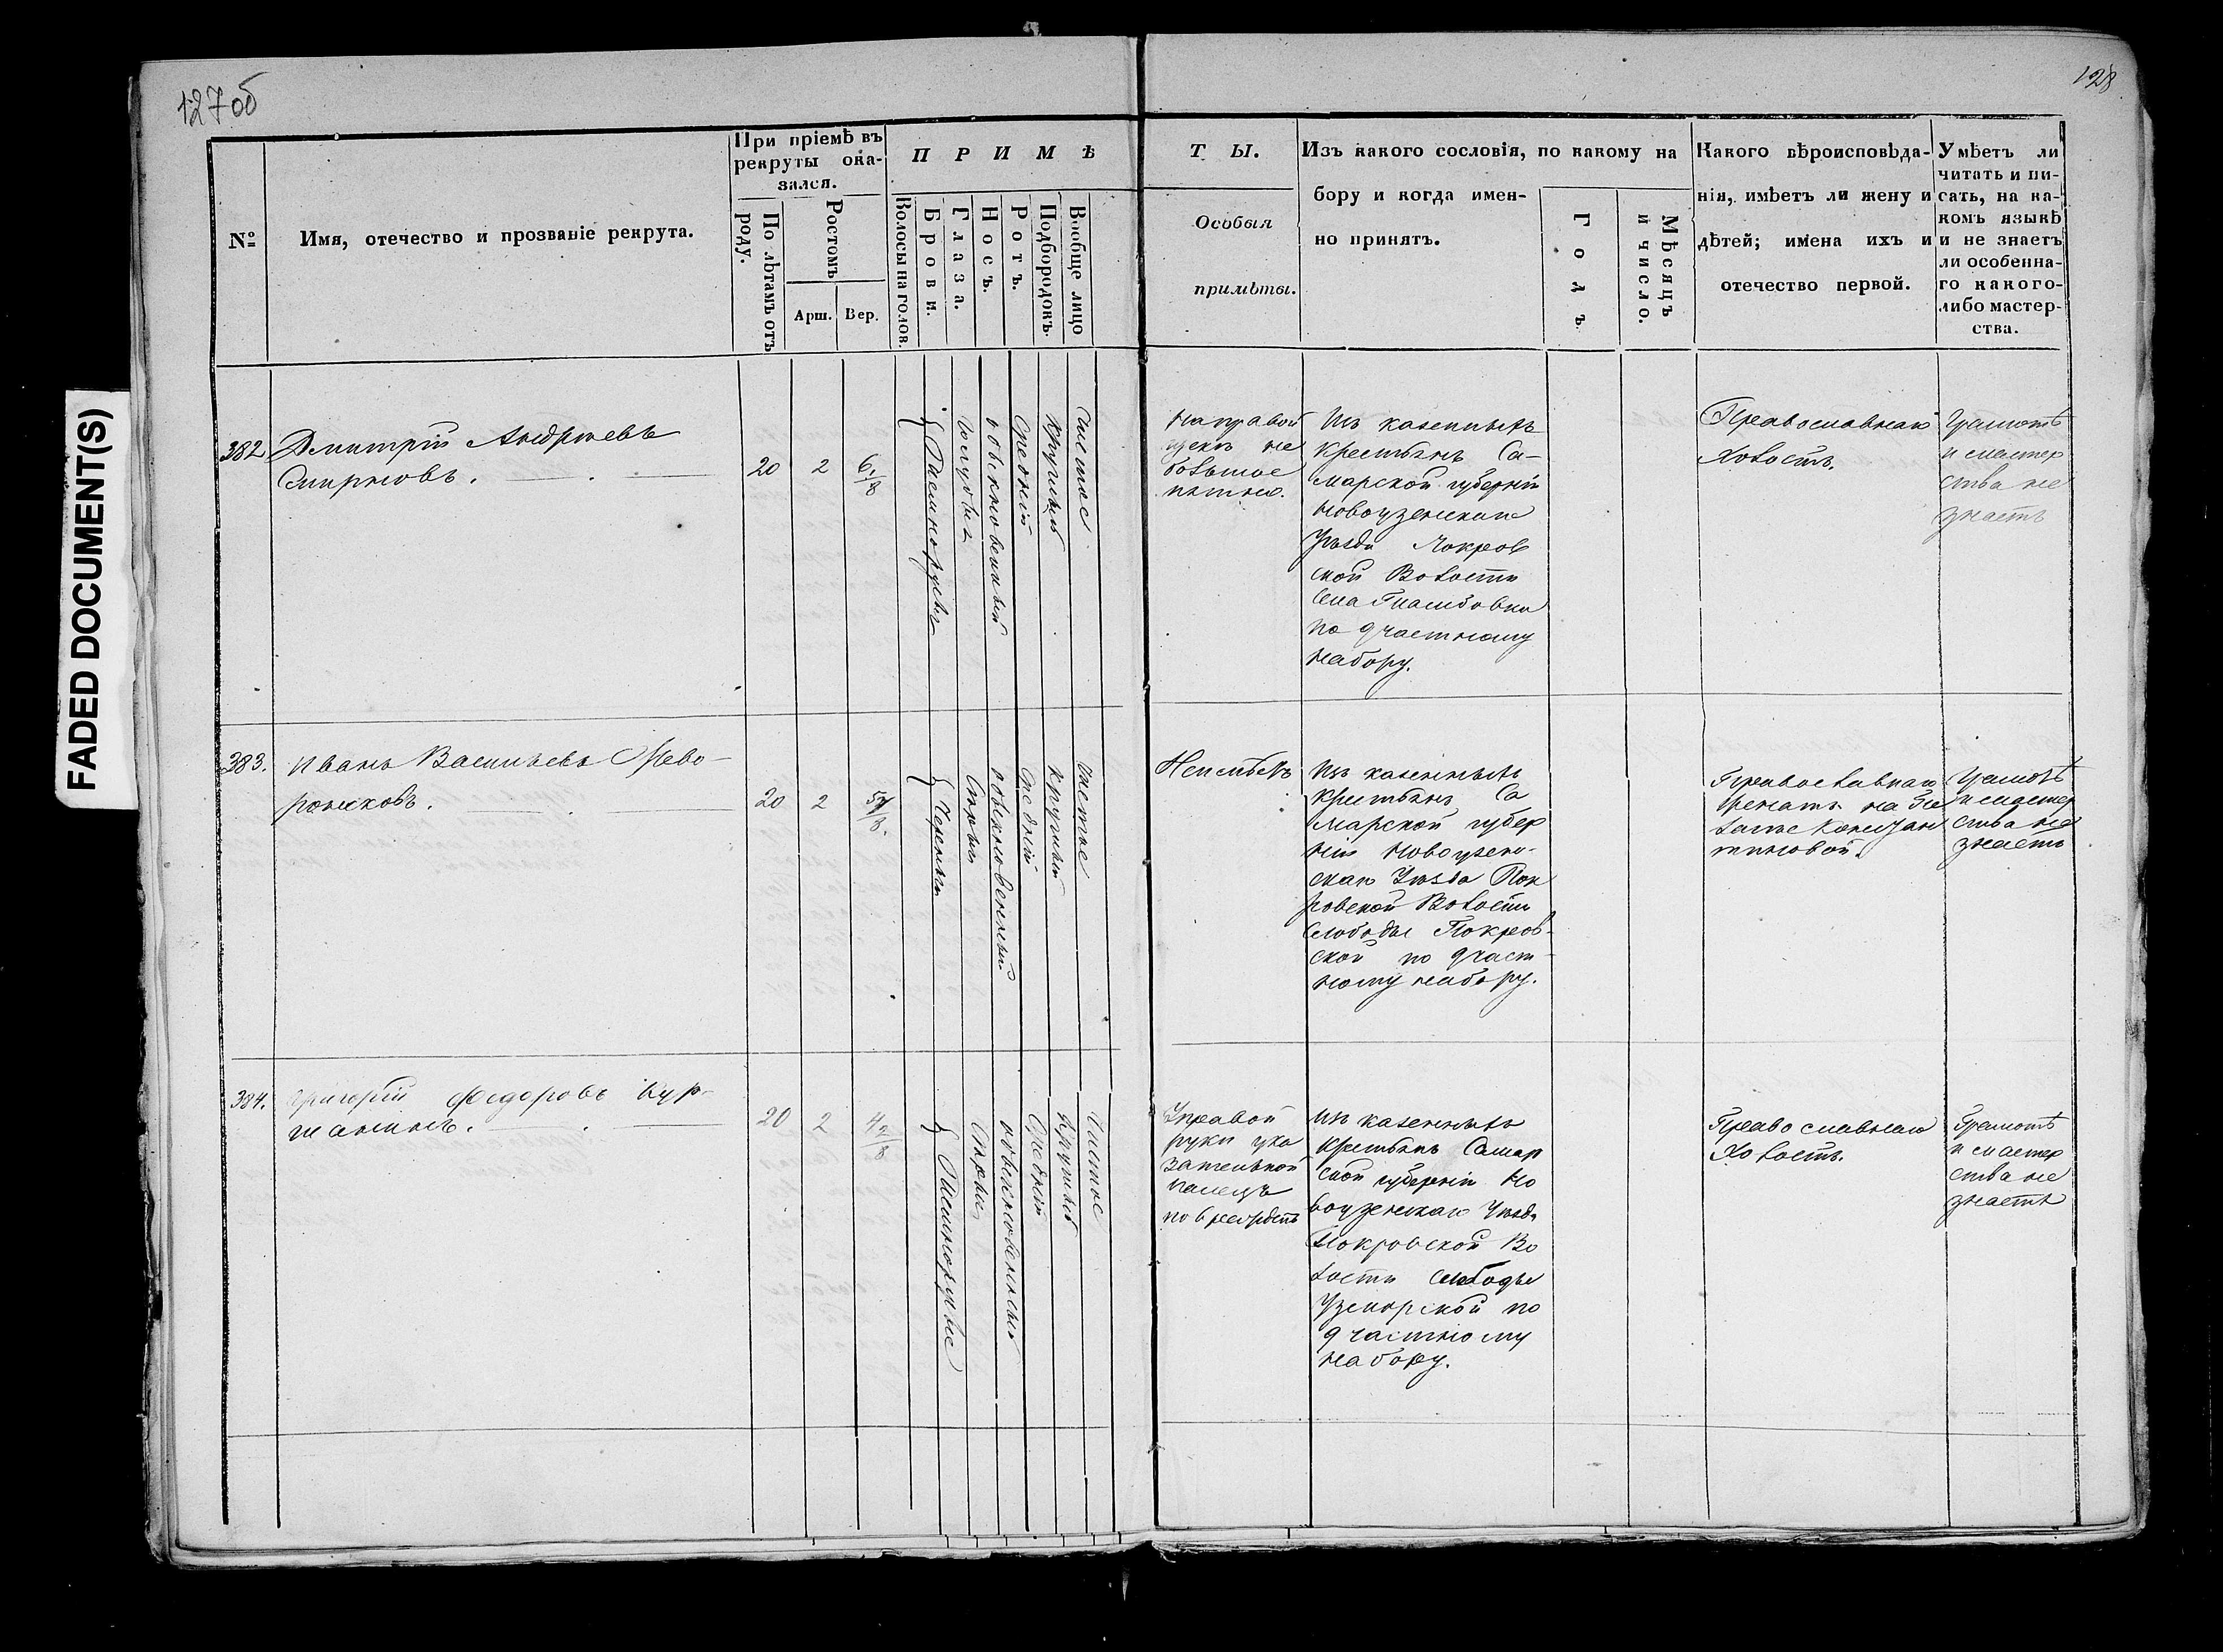 127об
128
FADED DOCUMENT(S)
№
Имя, отечество и прозваніе рекрута.
При пріемѣ въ
рекруты ока-
зался.
По лѣтамъ отъ
роду.
Ростомъ
Арш.
Вер.
П Р И М Ѣ
Волосы на голов.
Брови.
Глаза.
Носъ.
Ротъ.
Подбородокъ.
Вообще лицо
Т Ы.
Особыя
примѣты.
Изъ какого сословія, по какому на
бору и когда имен-
но принятъ.
Годъ
Мѣсяцъ
и число.
Какого вѣроисповѣда-
нія, имѣетъ ли жену и
дѣтей; имена ихъ и
отечество первой.
Умѣетъ ли
читать и пи-
сать, на ка-
комъ языкѣ
и не знаетъ
ли особенна-
го какого-
либо мастер-
ства.
382
Дмитрій Андреевъ
Смирновъ.
20
2
6 1/8
Темнорусые
Голубые
обыкновенный
Средній
Круглый
Чистое
На правой
щекѣ не
большое
пятно.
Изъ казенныхъ
крестьянъ Са-
марской губерніи
Новоузенскаго
Уѣзда Покров
ской Волости
Села
по 9 частному
набору.
Православнаго
Холостъ.
Грамотѣ
и мастер
ства не
знаетъ
383.
Иванъ Васильевъ
20
2
5 7/8.
Черный
Сѣрые
обыкновенный
Средній
Круглый
Чистое
Неимѣетъ
Изъ казенныхъ
крестьянъ Са
марской губер
ніи Новоузен-
скаго Уѣзда Пок
ровской Волости
Слободы Покров-
ской по 9 част-
ному набору.
Православнаго
Женатъ на
Грамотѣ
и мастер
ства не
знаетъ
384.
Григорій Федоровъ Кур-
20
2
4 2/8
Темнорусые
Сѣрые
обыкновенный
Средній
Круглый
Чистое
У правой
руки ука
зательной
палецъ
поврежденъ
Изъ казенныхъ
крестьянъ Самар
ской губерніи Но
воузенскаго Уѣзда
Покровской Во
лости Слободы
Узморской по
9 частному
набору.
Православнаго
Холостъ.
Грамотѣ
и мастер
ства не
знаетъ